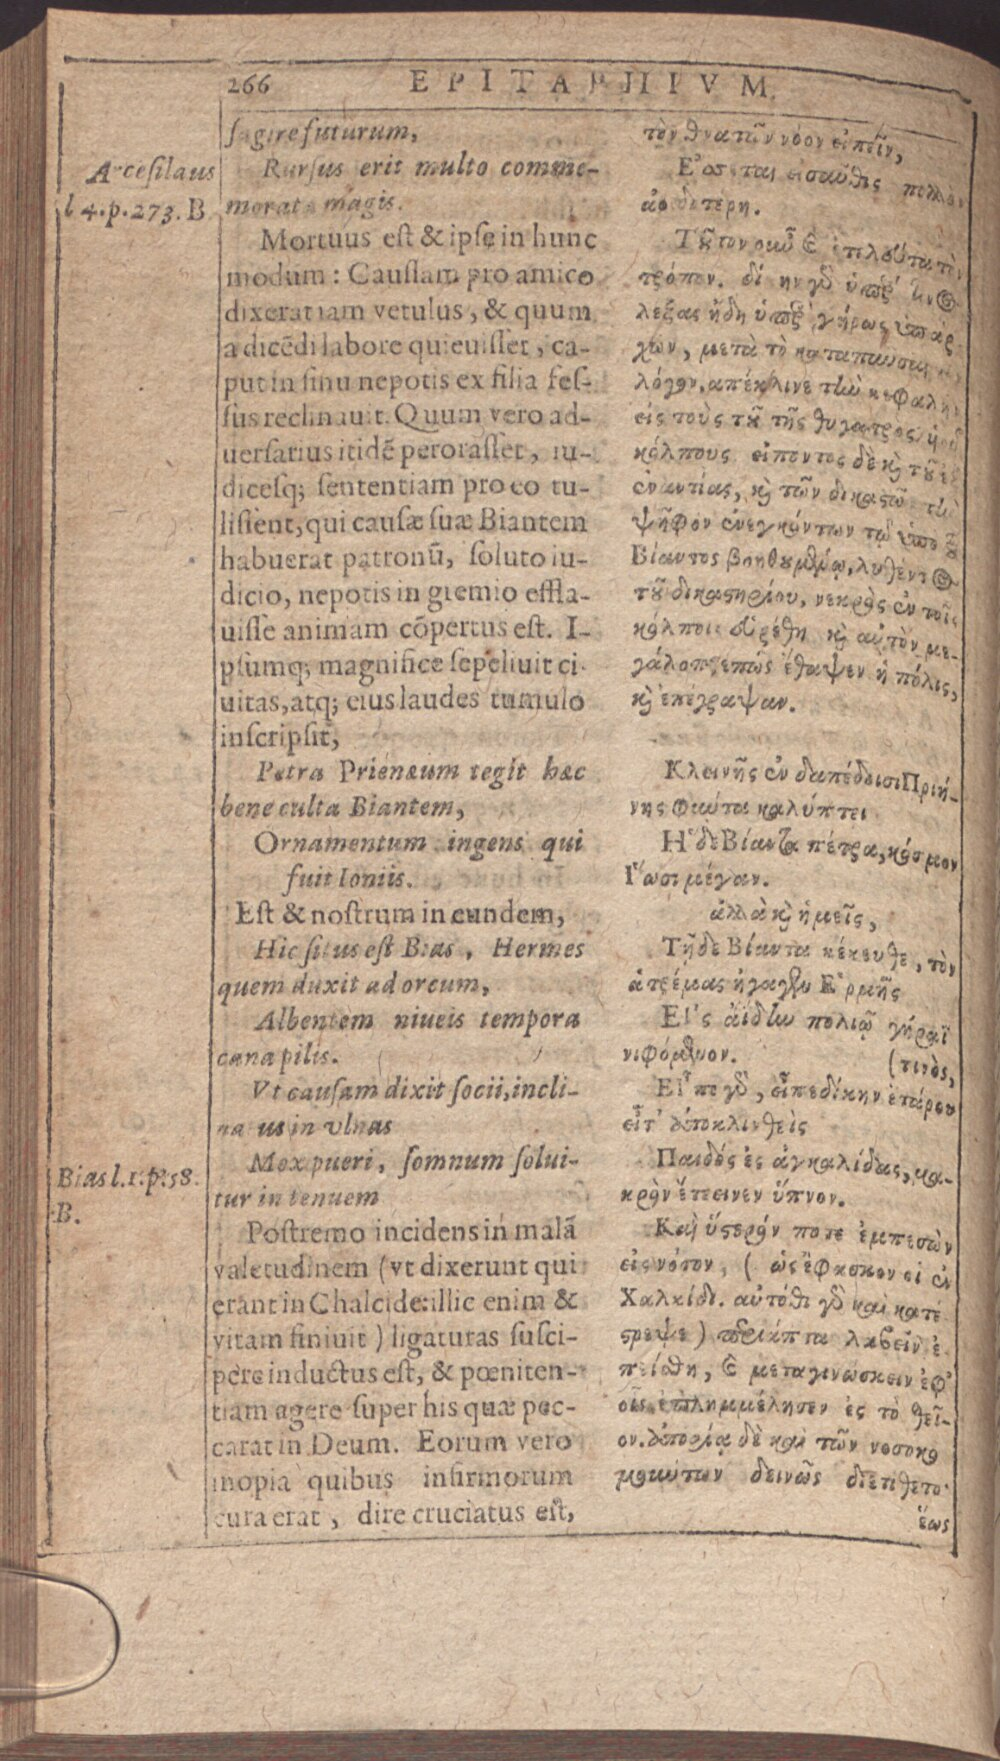 266 EPITAPHIVM.
Arcesilaus
l 4. p. 273. B
Bias l. 1. p. 58.
B.
sagire futurum,
Rursus erit multo comme-
morata magis.
Mortuus est & ipse in hunc
modum: Caussam pro amico
dixerat iam vetulus, & quum
a dicẽdi labore quieuisset, ca-
put in sinu nepotis ex filia fes-
sus reclinauit. Quum vero ad-
uersarius itidẽ perorasset, iu-
dicesq; sententiam pro eo tu-
lissent, qui causæ suæ Biantem
habuerat patronũ, soluto iu-
dicio, nepotis in gremio effla-
uisse animam cõpertus est. I-
psumq; magnifice sepeliuit ci-
uitas, atq; eius laudes tumulo
inscripsit,
Petra Prienæum tegit hæc
bene culta Biantem,
Ornamentum ingens qui
fuit Ioniis.
Est & nostrum in eundem,
Hic situs est Bias, Hermes
quem duxit ad orcum,
Albentem niueis tempora
cana pilis.
Vt causam dixit socii, incli-
natus in vlnas
Mox pueri, somnum solui-
tur in tenuem
Postremo incidens in malã
valetudinem (vt dixerunt qui
erant in Chalcide: illic enim &
vitam finiuit) ligaturas susci-
pere inductus est, & pœniten-
tiam agere super his quæ pec-
carat in Deum. Eorum vero
inopia quibus infirmorum
cura erat, dire cruciatus est,
τὸν θνατῶν νόον εἰπεῖν,
Ἔσσεται εἰσαῦθις πολλὸν
ἀοιδοτέρη.
Τοῦτον οὖν καὶ ἐτελεύτα τὸν
τρόπον. δίκην γὰρ ὑπέρ τινος
λέξας ἤδη ὑπὲρ γήρως ὑπάρ-
χων, μετὰ τὸ καταπαῦσαι τὸν
λόγον, ἀπέκλινε τὴν κεφαλὴν
εἰς τοὺς τοῦ τῆς θυγατρὸς υἱοῦ
κόλπους εἰπόντος δὲ καὶ τοῦ ἐξ
ἐναντίας, καὶ τῶν δικαστῶν τὴν
ψῆφον ἐνεγκόντων τῷ ὑπὸ τοῦ
Βίαντος βοηθουμένῳ, λυθέντος
τοῦ δικαστηρίου, νεκρὸς ἐν τοῖς
κόλποις εὑρέθη καὶ αὐτὸν με-
γαλοπρεπῶς ἔθαψεν ἡ πόλις,
καὶ ἐπέγραψαν.
Κλεινῆς ἐν δαπέδοισι Πριή-
νης φαύτα καλύπτει
Ἥδε Βίαντα πέτρα, κόσμον
Ἴωσι μέγαν.
ἀλλὰ καὶ ἡμεῖς,
Τῇδε Βίαντα κέκευθε, τὸν
ἀτρέμας ἤγαγεν Ἑρμῆς
Εἰς ἀΐδην πολιῷ γήραϊ
νιφόμενον. (τινὸς,
Εἶπε γὰρ, εἶπε δίκην ἑτάρου
εἶτ᾽ ἀποκλινθεὶς
Παιδὸς ἐς ἀγκαλίδας, μα-
κρὸν ἔτεινεν ὕπνον.
Καὶ ὕστερόν ποτε ἐμπεσὼν
εἰς νόσον, ( ὡς ἔφασκον οἱ ἐν
Χαλκίδι. αὐτόθι γὰρ καὶ κατέ
στρεψε ) περίαπτα λαβεῖν ἐ-
πείσθη, καὶ μεταγινώσκειν ἐφ᾽
οἷς ἐπλημμέλησεν ἐς τὸ θεῖ-
ον. ἀπορίᾳ δὲ καὶ τῶν νοσοκο
μούντων δεινῶς διετίθετο·
ἕως